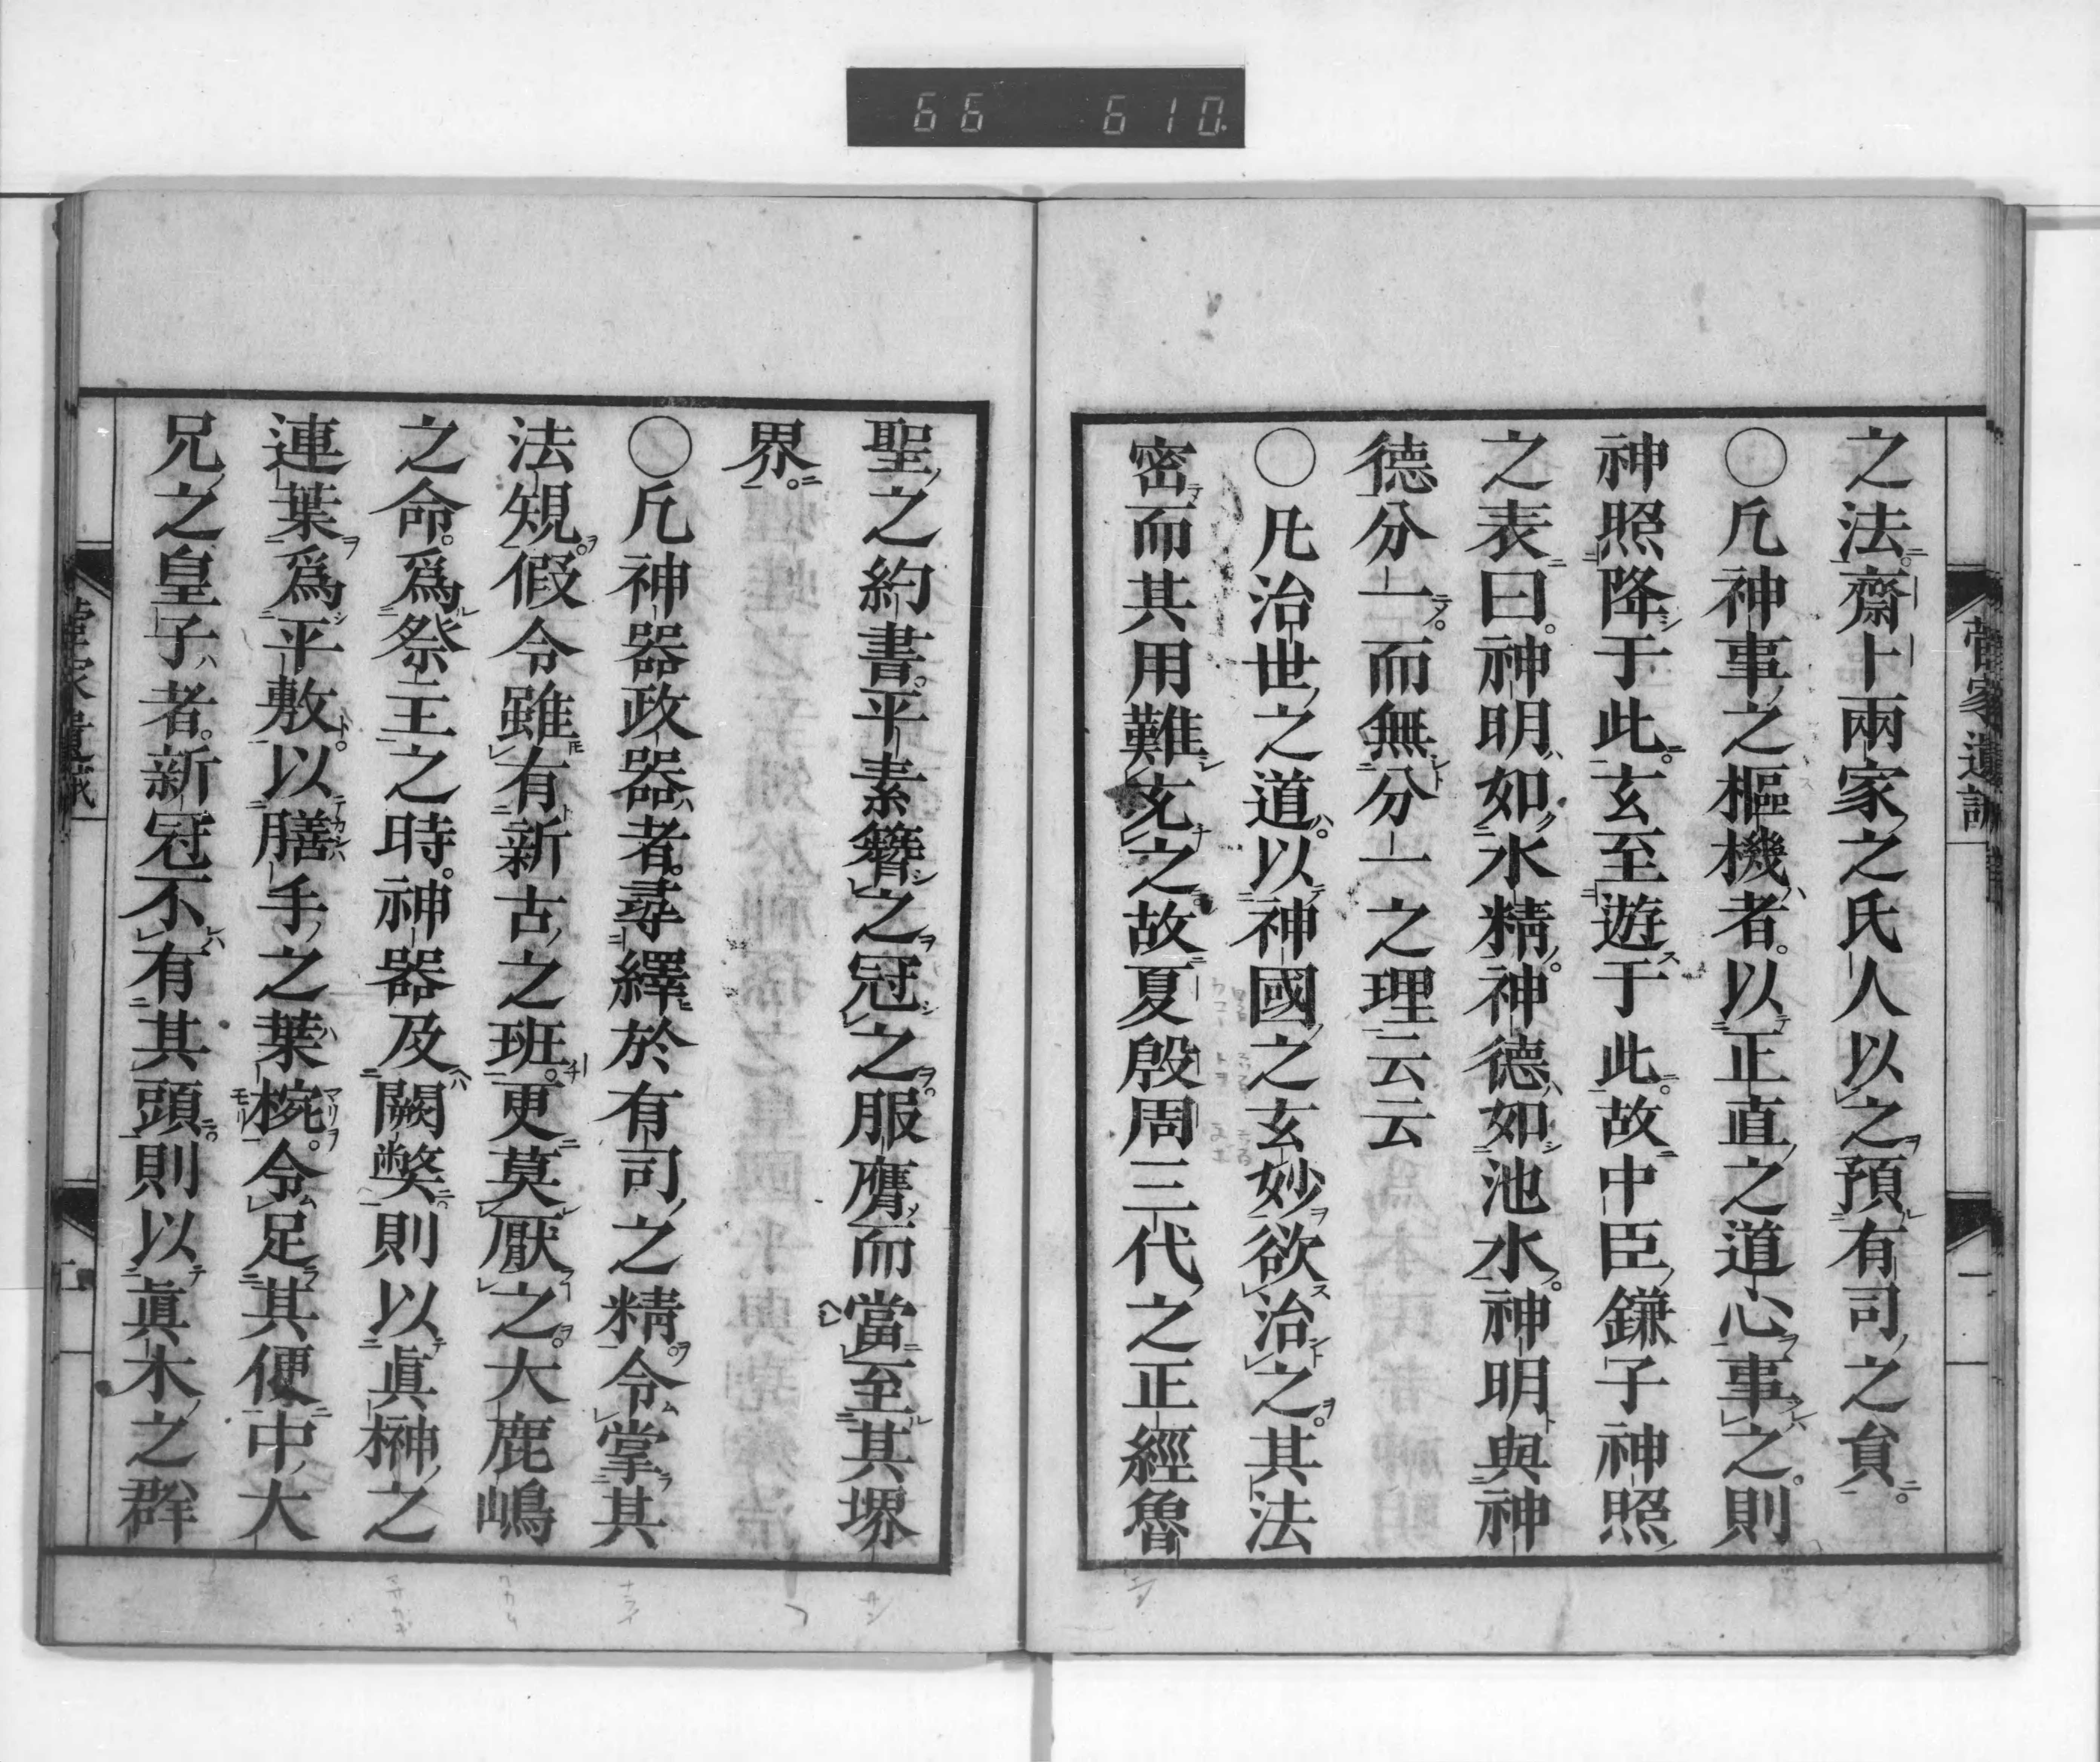 66 610.
菅家遺誡
一
之法。齋卜兩家之氏人以之預有司之負。
○凢神事之樞機者。以正直之道心事之。則
神照降于此。玄至遊于此。故中臣鎌子神照
之表曰。神明如水精。神德如池水。神明與神
德分一。而無分一之理云云
○凢治世之道。以神國之玄妙欲治之。其法
密而其用難充之故夏殷周三代之正經魯
聖之約書。平素簪之冠之。服膺而當至其堺
界。
○凢神器政器者。尋繹於有司之精。令掌其
法䂓。假令雖有新古之班。更莫厭之。大鹿嶋
之命。爲祭主之時。神器及闕弊。則以眞榊之
連葉爲平敷。以膳手之葉椀。令足其便。中大
兄之皇子者。新冠不有其頭。則以眞木之群
菅家遺誡
二